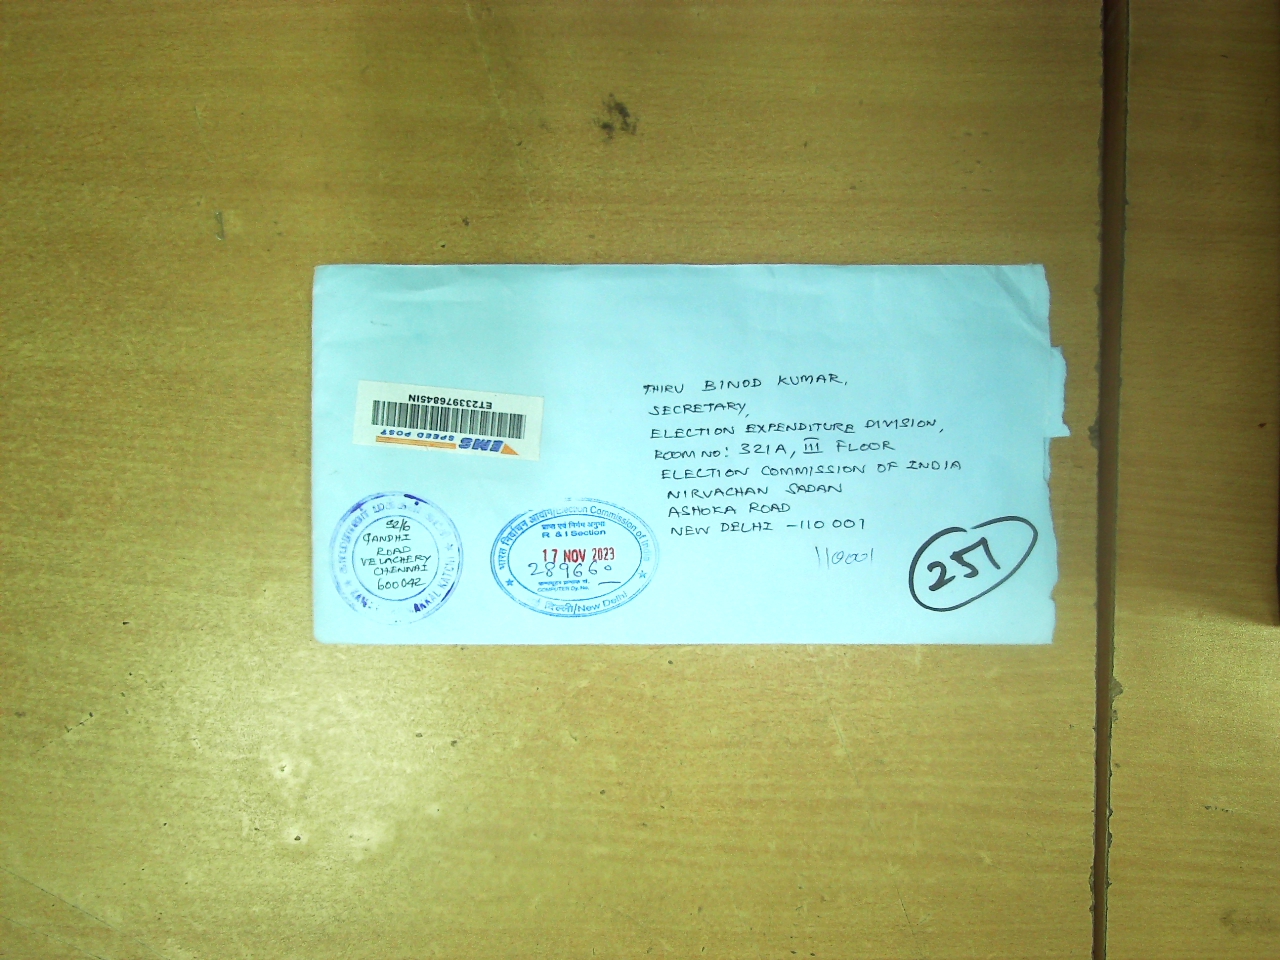 ET233976845IN
EMS SPEED POST
THIRU BINOD KUMAR,
SECRETARY,
ELECTION EXPENDITURE DIVISION,
ROOM NO: 321A, III FLOOR
ELECTION COMMISSION OF INDIA
NIRVACHAN SADAN
ASHOKA ROAD
NEW DELHI - 110 001
110001
257
52/6
GANDHI
ROAD
VELACHERY
CHENNAI
600042
भारत निर्वाचन आयोग/Election Commission of India
प्राप्त एवं निर्गम अनुभाग
R & I Section
17 NOV 2023
289660
COMPUTER Dy. No.
दिल्ली/New Delhi